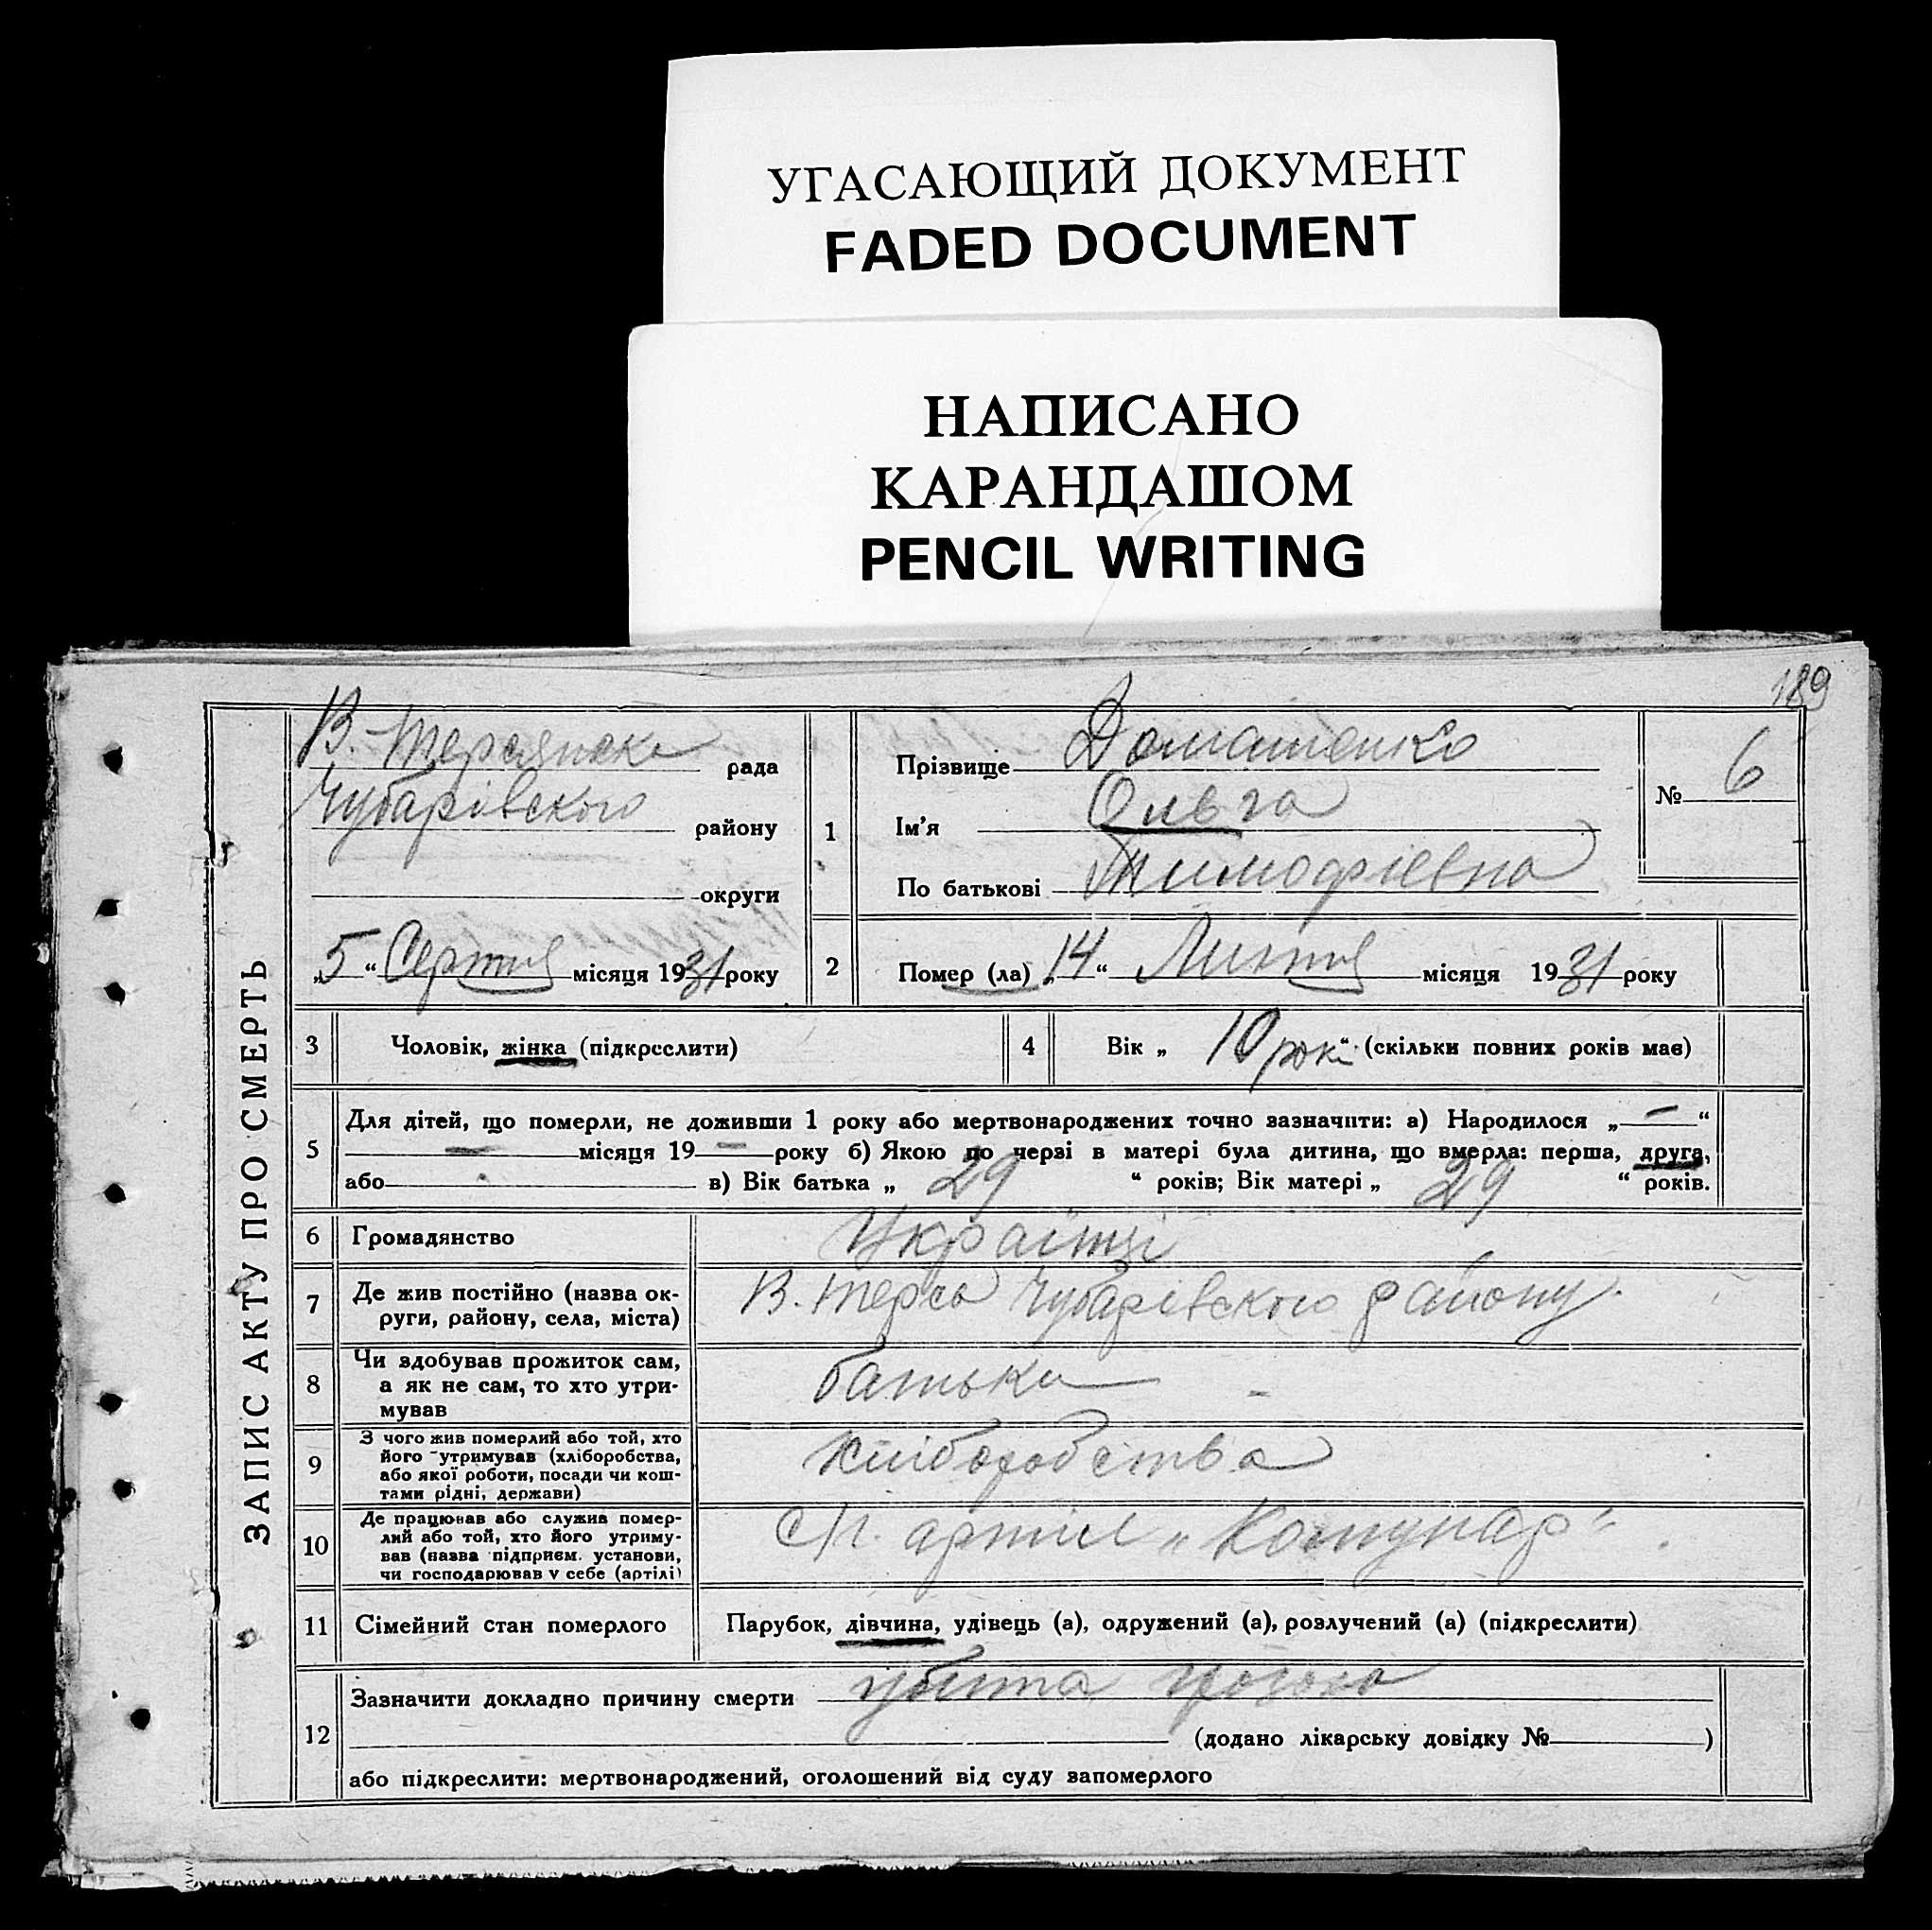 УГАСАЮЩИЙ ДОКУМЕНТ
FADED DOCUMENT
НАПИСАНО
КАРАНДАШОМ
PENCIL WRITING
189
ЗАПИС АКТУ ПРО СМЕРТЬ
В. Терсянска рада
Чубарівского району
округи
„5“ Серпня місяця 1931 року
1
Прізвище Домашенко
Ім'я Ольга
По батькові Тимофіевна
№ 6
2 Помер (ла) „14“ Липня місяця 1931 року
3 Чоловік, жінка (підкреслити)
4 Вік „10 рок“ (скільки повних років має)
5 Для дітей, що померли, не доживши 1 року або мертвонароджених точно зазначити: а) Народилося „—“
— місяця 19— року б) Якою по черзі в матері була дитина, що вмерла: перша, друга,
або в) Вік батька „29“ років; Вік матері „29“ років.
6 Громадянство Українці
7 Де жив постійно (назва ок-
руги, району, села, міста)
В. Терса Чубарівского району.
8 Чи здобував прожиток сам,
а як не сам, то хто утри-
мував
батьки
9 З чого жив померлий або той, хто
його утримував (хліборобства,
або якої роботи, посади чи кош-
тами рідні, держави)
Хліборобства
10 Де працював або служив помер-
лий або той, хто його утриму-
вав (назва підприєм. установи,
чи господарював у себе (артілі)
артіл „Комунар“
11 Сімейний стан померлого Парубок, дівчина, удівець (а), одружений (а), розлучений (а) (підкреслити)
12 Зазначити докладно причину смерти убита грозою
(додано лікарську довідку № )
або підкреслити: мертвонароджений, оголошений від суду запомерлого